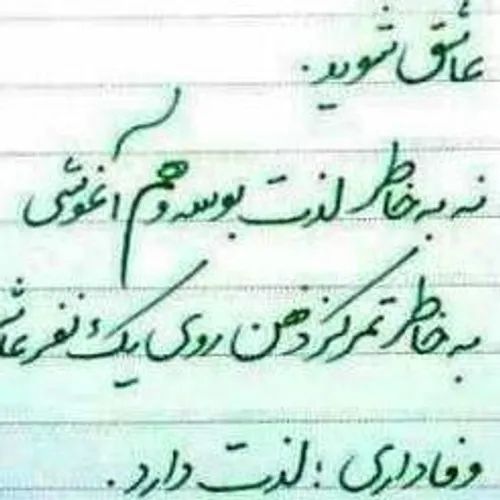 عاشق شوید.
نه به خاطر لذت بوسه و هم آغوشی
به خاطر تمرکز ذهن روی یک نفر
وفاداری؛ لذت دارد.